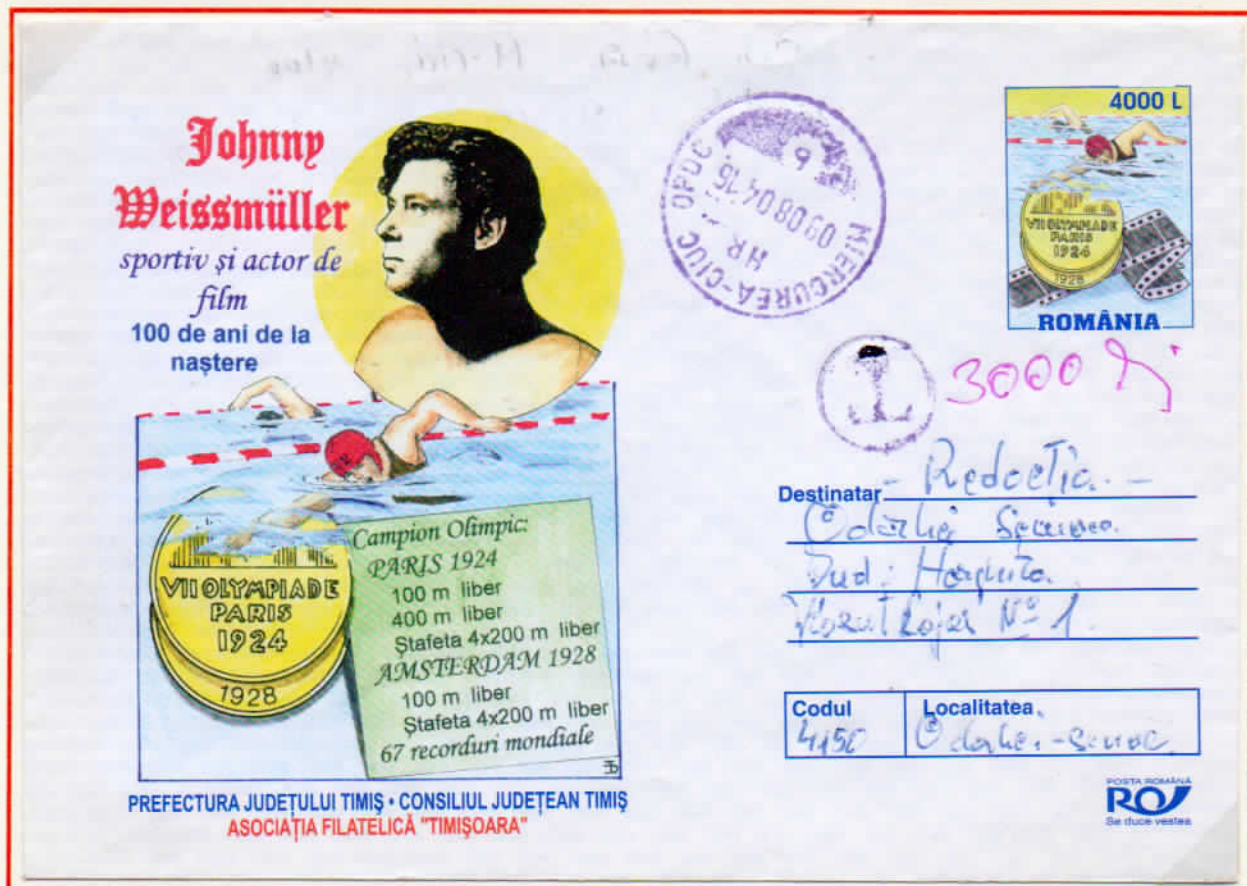 Johnny
Weissmüller
sportiv și actor de
film
100 de ani de la
naștere
VII OLYMPIADE
PARIS
1924
1928
Campion Olimpic:
PARIS 1924
100 m liber
400 m liber
Ștafeta 4x200 m liber
AMSTERDAM 1928
100 m liber
Ștafeta 4x200 m liber
67 recorduri mondiale
PREFECTURA JUDEȚULUI TIMIȘ • CONSILIUL JUDEȚEAN TIMIȘ
ASOCIAȚIA FILATELICĂ "TIMIȘOARA"
MIERCUREA-CIUC OPDC
6
09 08 04.15
HR
4000 L
VII OLYMPIADE
PARIS
1924
1928
ROMÂNIA
T
3000
Destinatar - Redacția -
Jud: Harghita
Nº 1.
Codul
4150
Localitatea
POSTA ROMÂNĂ
Se duce vestea